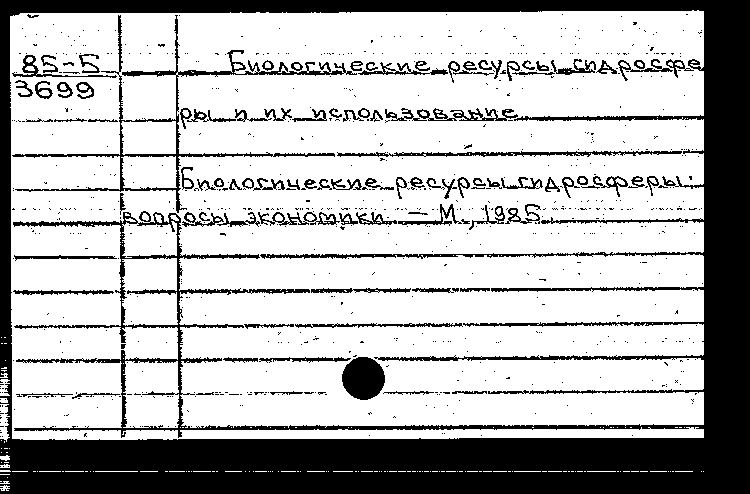 85-5
3699
Биологические ресурсы гидросфе
ры и их использование
Биологические ресурсы гидросферы:
вопросы экономики - М., 1985